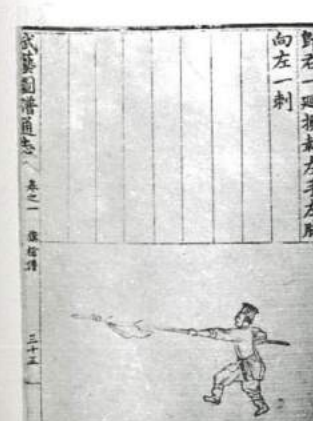 一廻執左手左脚
向左一刺
武藝圖譜通志 卷之一 旗槍譜 三十五